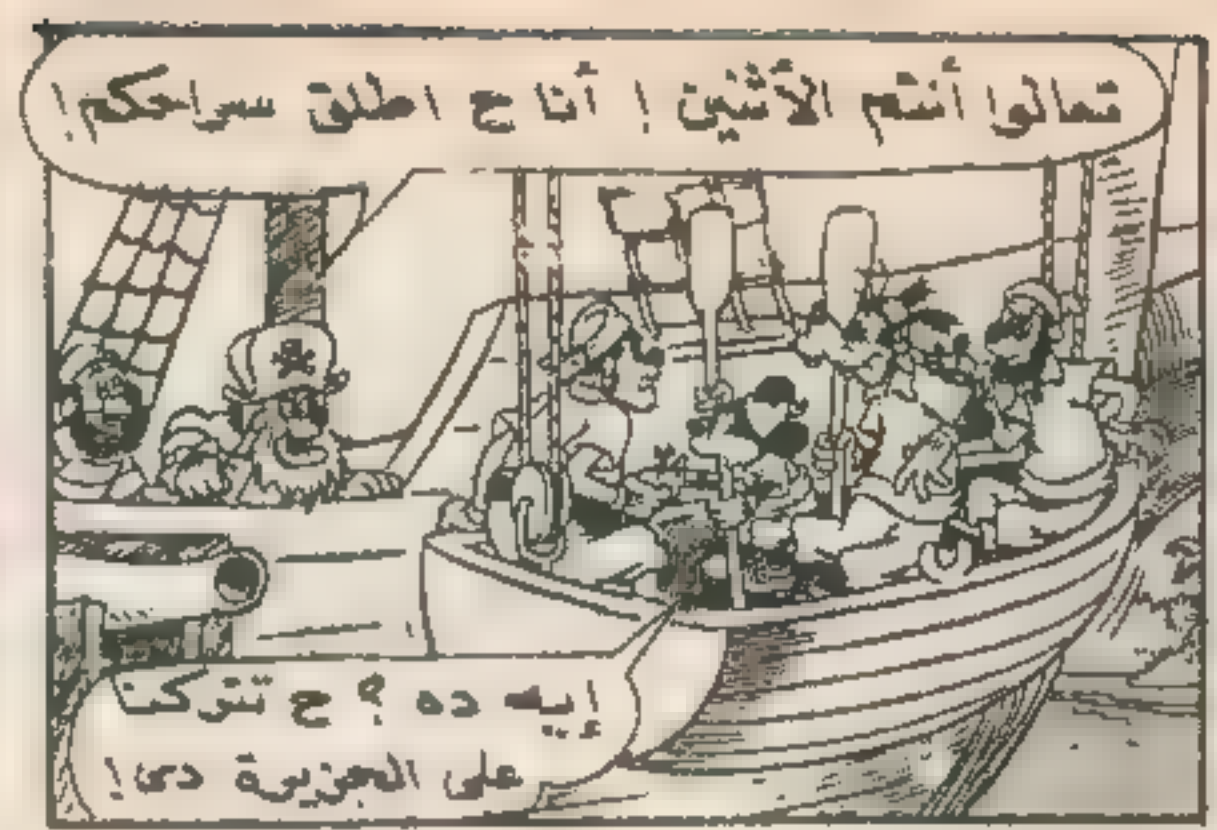 تعالوا أنتم الأثنين ! أنا ح اطلق سراحكم !
إيه ده ؟ ح تتركنا
على الجزيرة دى !